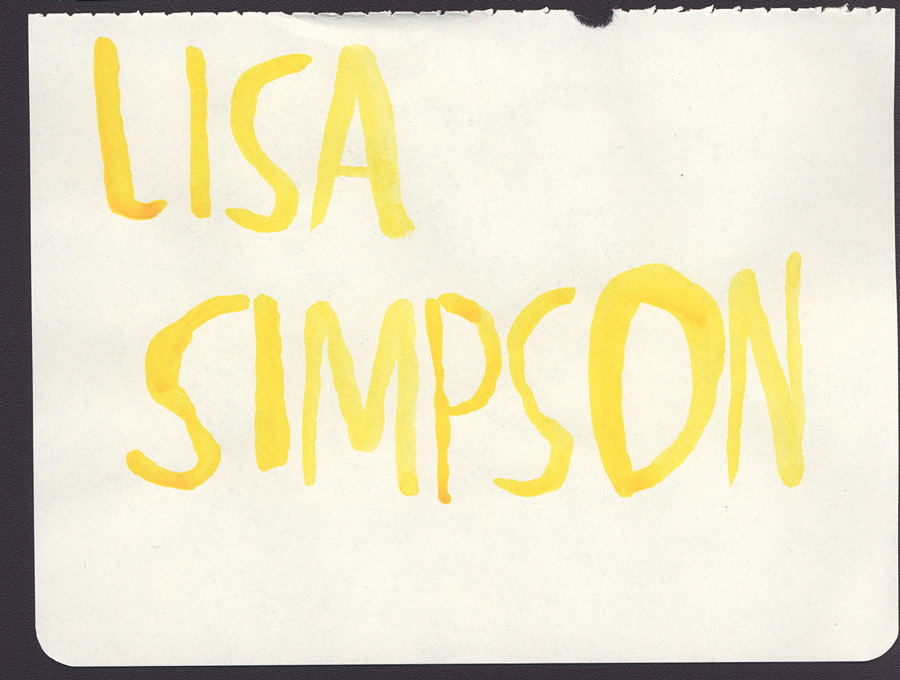 LISA
SIMPSON